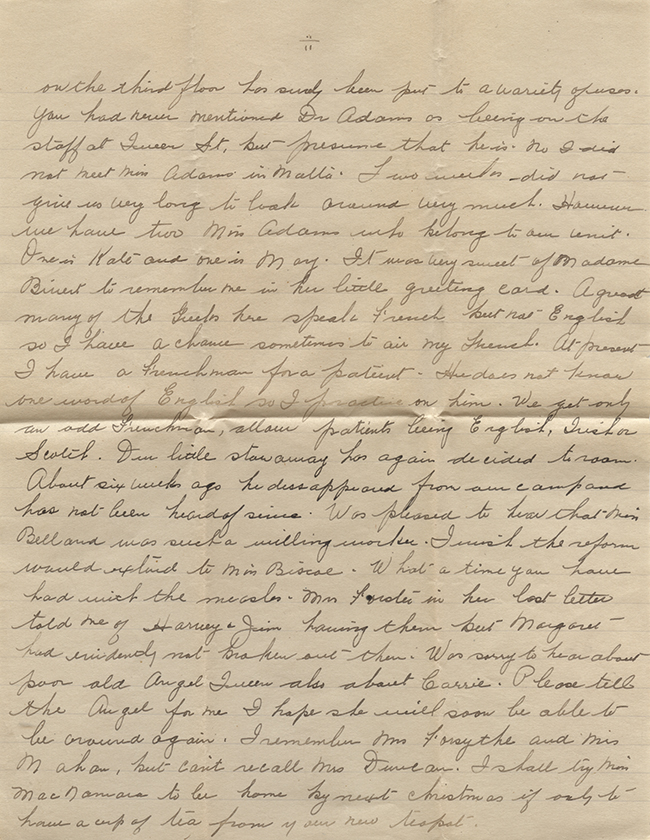 11
on the third floor has surely been put to a variety of uses.
You had never mentioned Dr Adams as being on the
staff at Queen St, but presume that he is. No I did
not meet Miss Adams in Malta. Two weeks did not
give us very long to look around very much. However
we have two Miss Adams who belong to our unit.
One is Kate and one is Mary. It was very sweet of Madame
to remember me in her little greeting card. A great
many of the Greeks here speak French but not English
so I have a chance sometimes to air my French. At present
I have a Frenchman for a patient. He does not know
one word of English so I practice on him. We get only
an odd Frenchman, all our patients being English, Irish or
Scotch. Our little stowaway has again decided to roam.
About six weeks ago he dissappeared from our camp and
has not been heard of since. Was pleased to hear that Miss
Bell and was such a willing worker. I wish the reform
would extend to Miss Biscoe. What a time you have
had with the measles. Mrs in her last letter
told me of Harvey & Jim having them but Margaret
had evidently not broken out then. Was sorry to hear about
poor old Angel Queen also about Carrie. Please tell
the Angel for me I hope she will soon be able to
be around again. I remember Mrs Forsythe and Mrs
Mahan, but can't recall Mrs Duncan. I shall try Miss
MacNamara to be home by next christmas if only to
have a cup of tea from your new teapot.